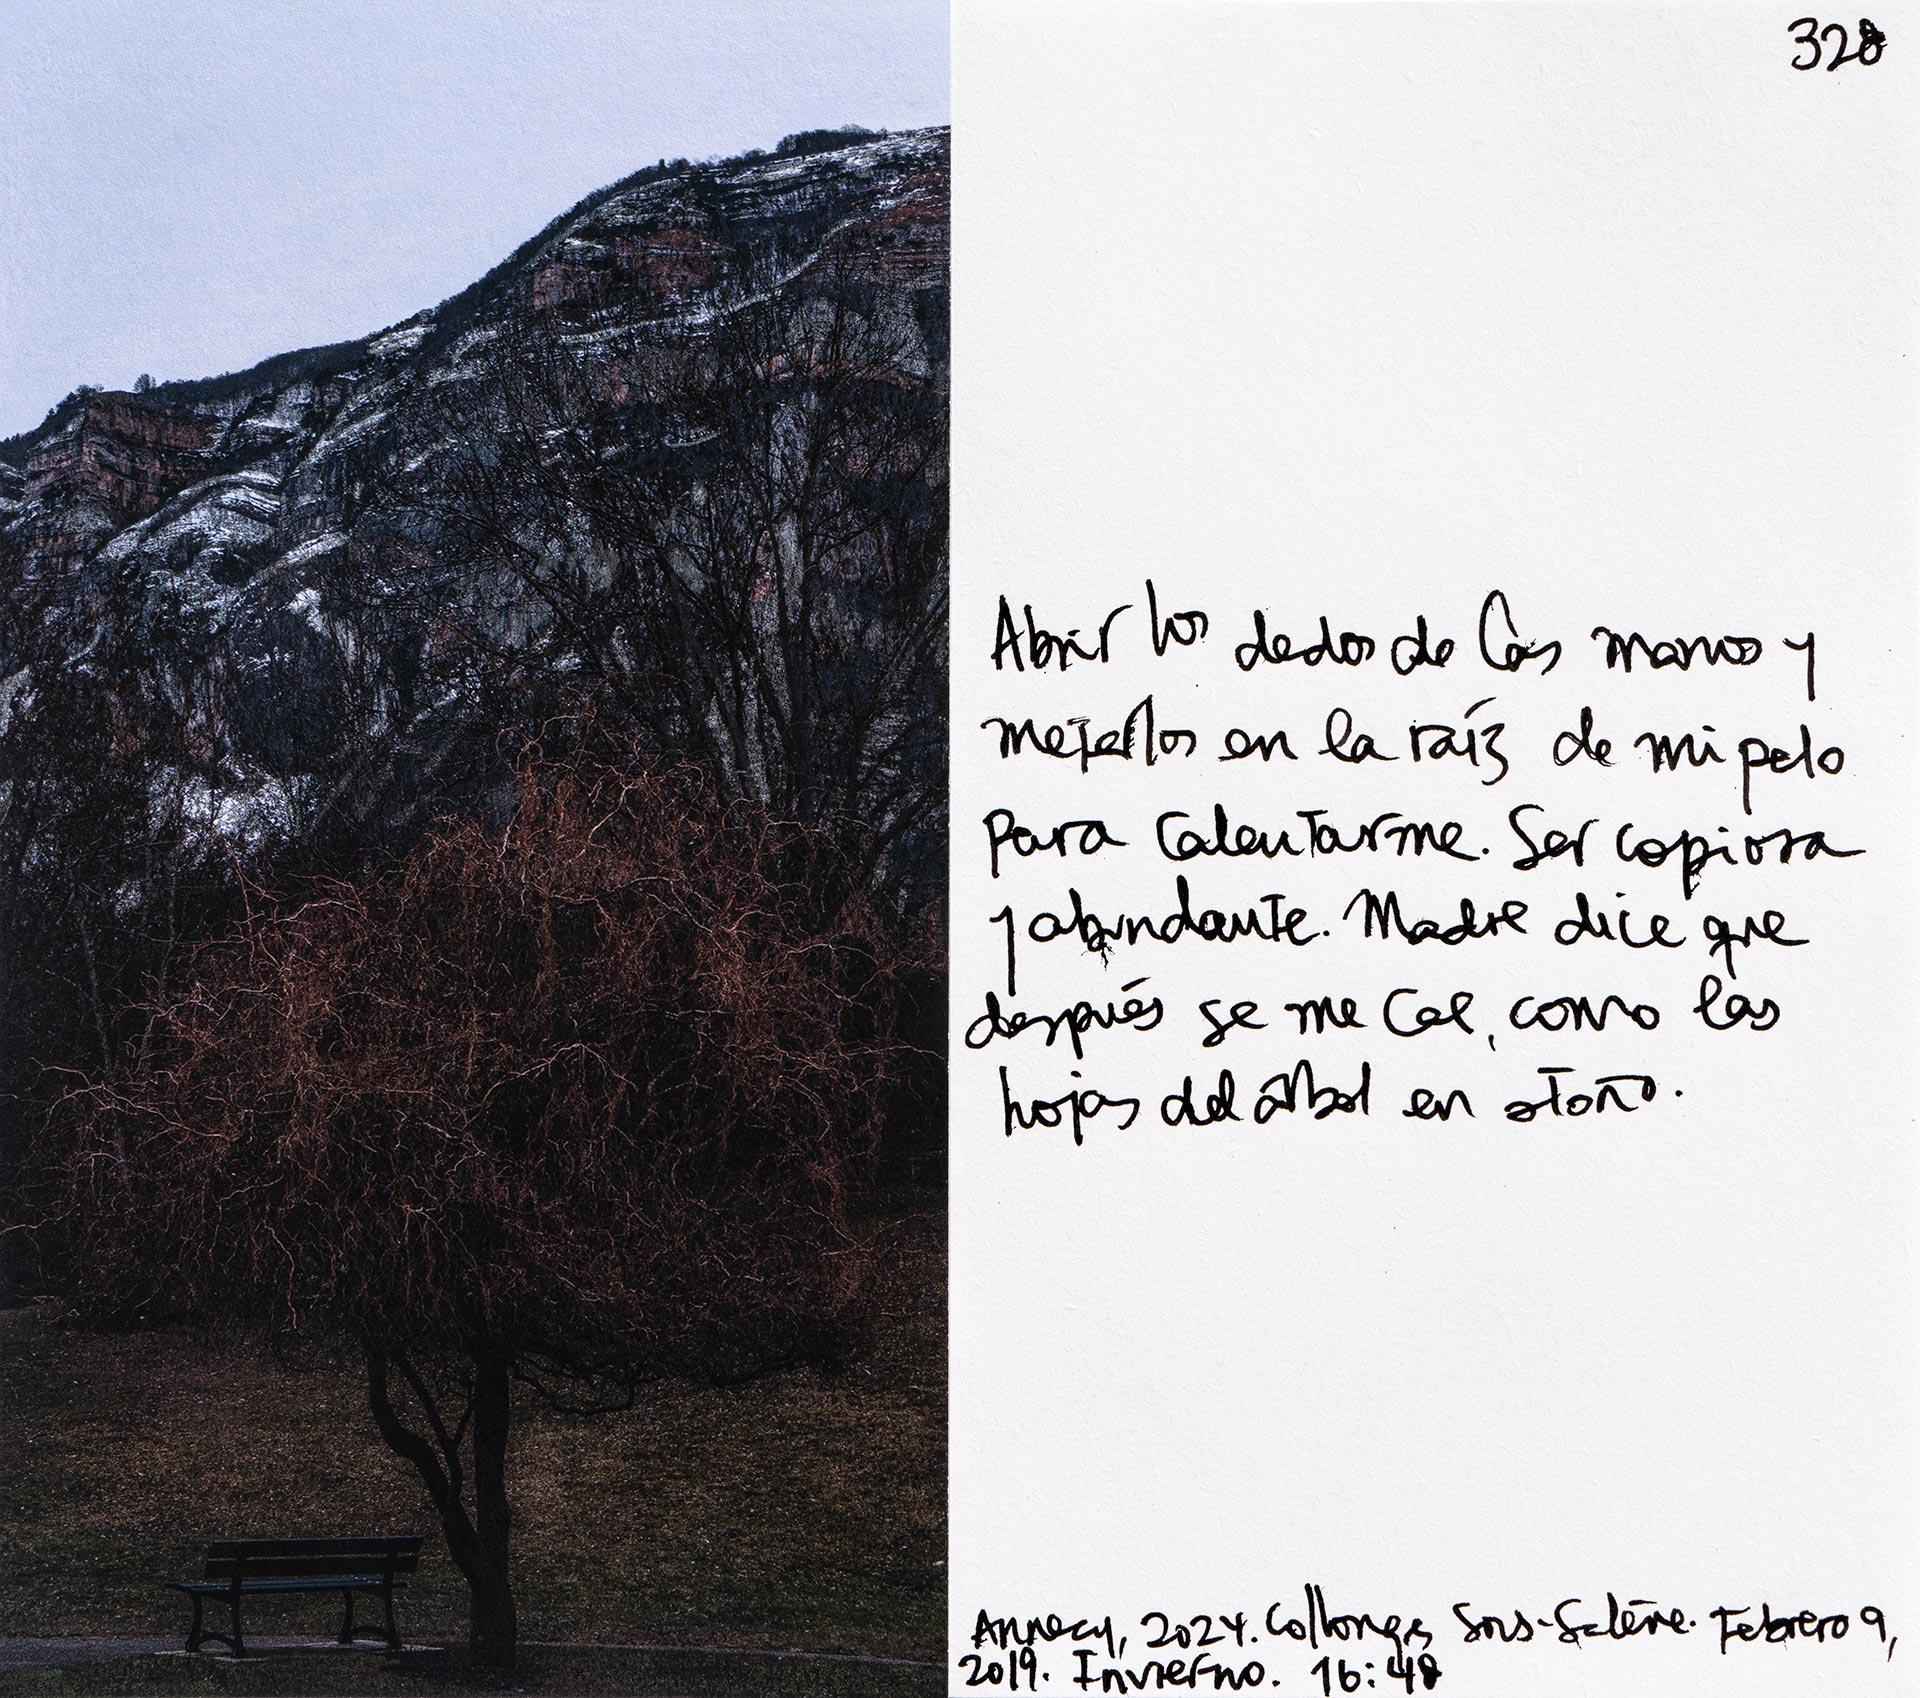 328
Abrir los dedos de las manos y
meterlos en la raíz de mi pelo
para calentarme. Ser copiosa
y abundante. Madre dice que
después se me cae, como las
hojas del árbol en otoño.
Annecy, 2024. Collonges Sous-Salève. Febrero 9,
2019. Invierno. 16:48